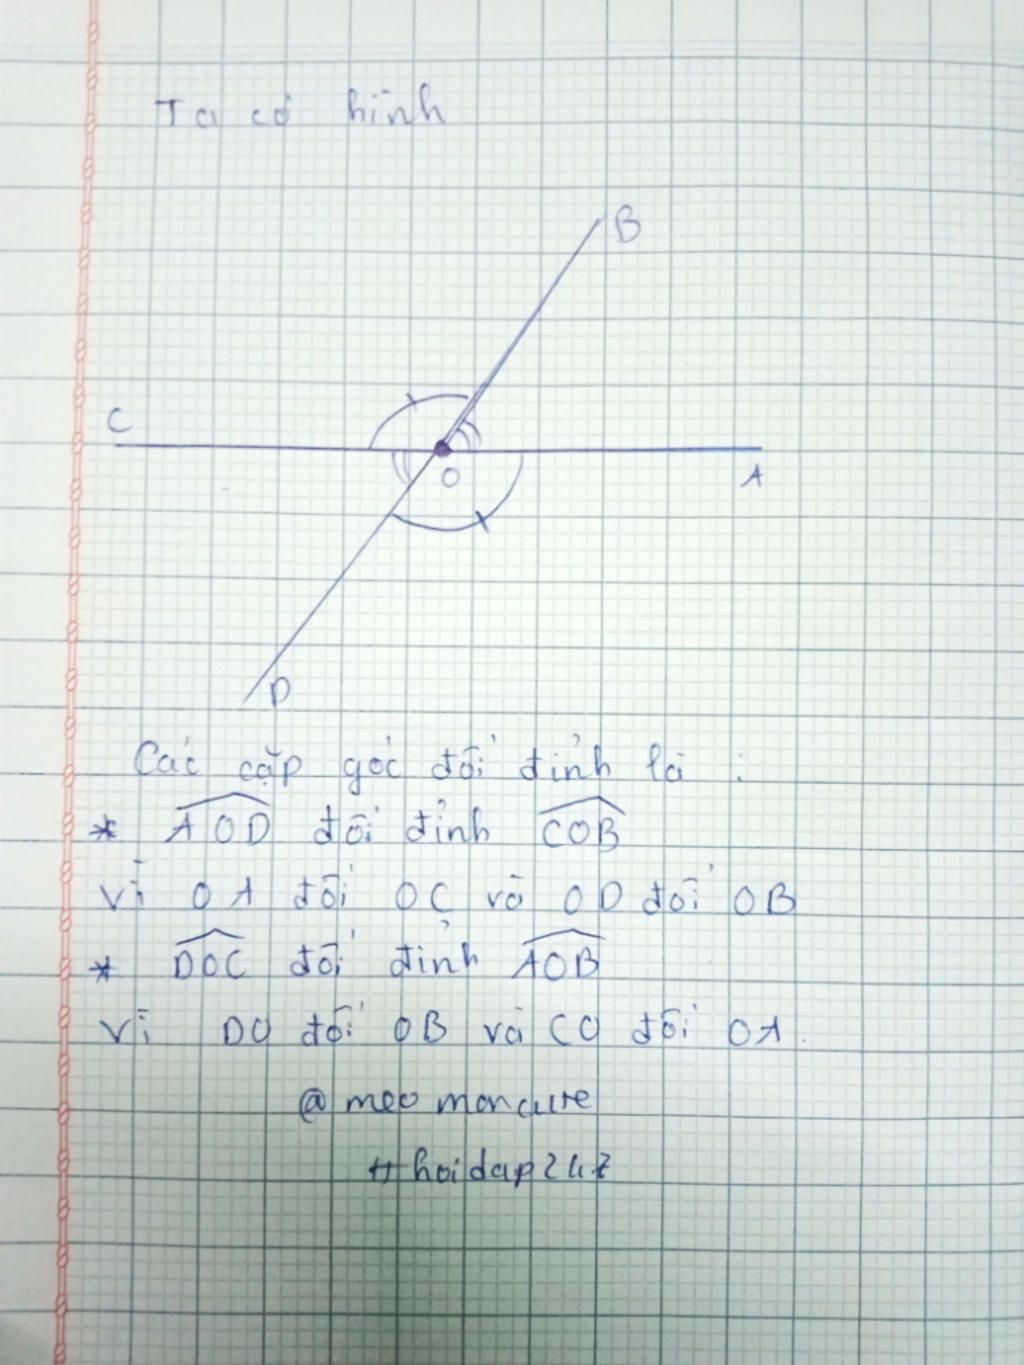 Ta có hình
B
C
O
A
D
Các cặp góc đối đỉnh là :
* AOD đối đỉnh COB
Vì OA đối OC và OD đối OB
* DOC đối đỉnh AOB
Vì DO đối OB và CO đối OA.
@ meo moncure
# hoidap247